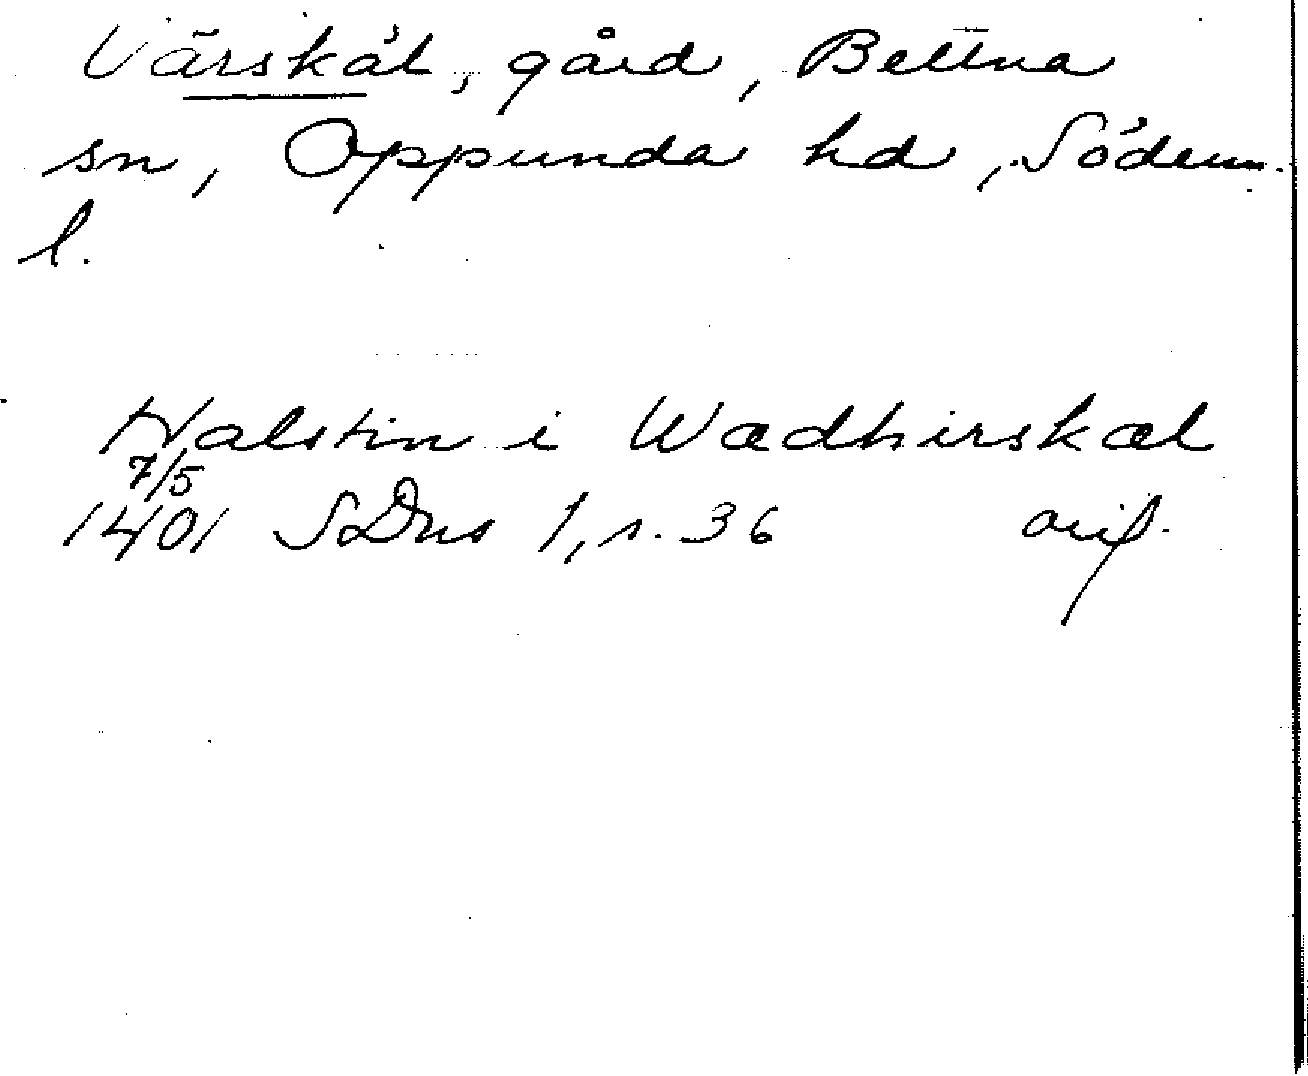 Värskäl, gård, Bettna
sn, Oppunda hd, Söderm.
l.
Halstin i Wædhirskæl
7/5
1401 SDns 1, s. 36 orig.